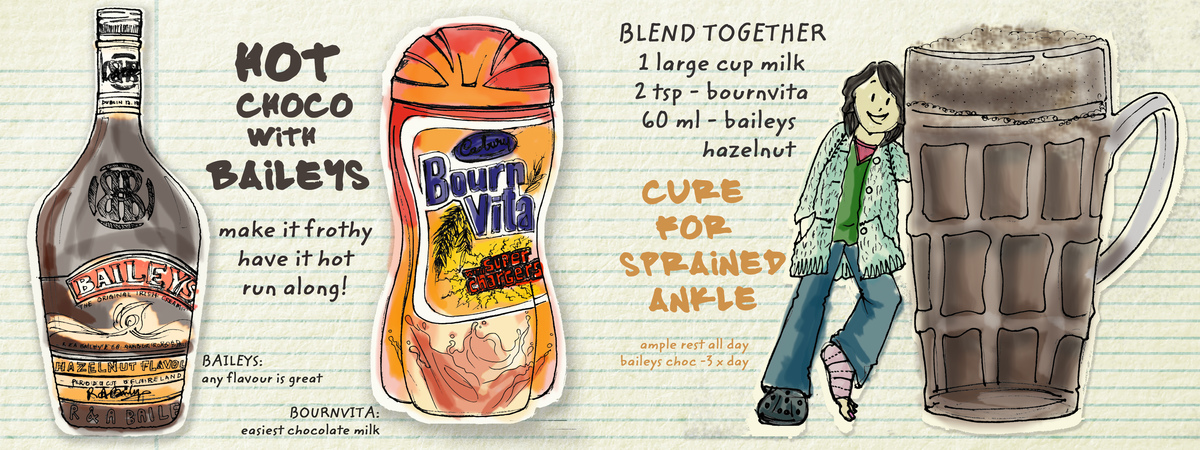 HOT
CHOCO
WITH
BAILEYS
make it frothy
have it hot
run along!
BAILEYS:
any flavour is great
BOURNVITA:
easiest chocolate milk
BAILEYS
THE ORIGINAL IRISH CREAM
HAZELNUT FLAVOU
PRODUCT OF IRELAND
R & A BAILE
Bourn
Vita
super
chargers
BLEND TOGETHER
1 large cup milk
2 tsp - bournvita
60 ml - baileys
hazelnut
CURE
FOR
SPRAINED
ANKLE
ample rest all day
baileys choc -3 x day